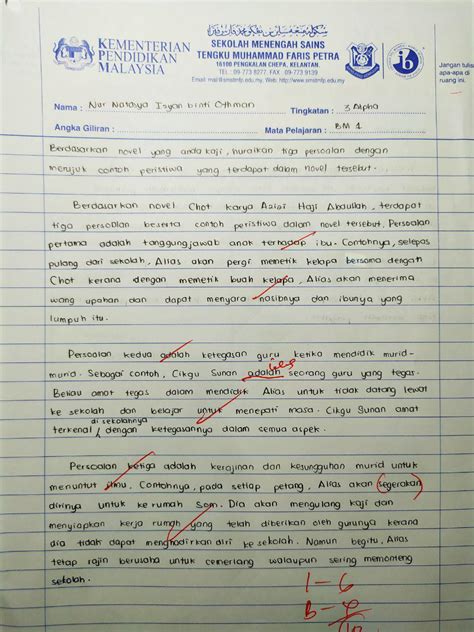 KEMENTERIAN
PENDIDIKAN
MALAYSIA
SEKOLAH MENENGAH SAINS
TENGKU MUHAMMAD FARIS PETRA
16100 PENGKALAN CHEPA, KELANTAN.
TEL : 09-773 8277, FAX : 09-773 9139
ib
Jangan tulis
apa-apa di
ruang ini.
Nama : Nur Natasya Isyan binti Othman
Tingkatan : 3 Alpha
Angka Giliran :
Mata Pelajaran : BM 1
Berdasarkan novel yang anda kaji, huraikan tiga persoalan dengan
merujuk contoh peristiwa yang terdapat dalam novel tersebut.
Berdasarkan novel Chot karya Azizi Haji Abdullah, terdapat
tiga persoalan beserta contoh peristiwa dalam novel tersebut. Persoalan
pertama adalah tanggungjawab anak terhadap ibu. Contohnya, selepas
pulang dari sekolah, Alias akan pergi memetik kelapa bersama dengan
Chot kerana dengan memetik buah kelapa, Alias akan menerima
wang upahan dan dapat menyara nasibnya dan ibunya yang
lumpuh itu.
Persoalan kedua adalah ketegasan guru ketika mendidik murid-
murid. Sebagai contoh, Cikgu Sunan adalah seorang guru yang tegas.
Beliau amat tegas dalam mendidik Alias untuk tidak datang lewat
ke sekolah dan belajar untuk menepati masa. Cikgu Sunan amat
di sekolahnya
terkenal dengan ketegasannya dalam semua aspek.
Persoalan ketiga adalah kerajinan dan kesungguhan murid untuk
menuntut ilmu. Contohnya, pada setiap petang, Alias akan segerakan
dirinya untuk ke rumah Som. Dia akan mengulang kaji dan
menyiapkan kerja rumah yang telah diberikan oleh gurunya kerana
dia tidak dapat menghadirkan diri ke sekolah. Namun begitu, Alias
tetap rajin berusaha untuk cemerlang walaupun sering memonteng
sekolah.
1 - 6
B - 4